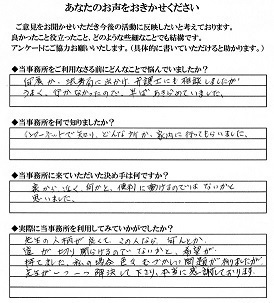 あなたのお声をおきかせください
ご意見をお聞かせいただき今後の活動に反映したいと考えております。
良かったこと役立ったこと、どのような些細なことでも結構です。
アンケートにご協力お願いいたします。（具体的に書いていただけると助かります。）
◆当事務所をご利用なさる前にどんなことで悩んでいましたか？
何度か、法務局に出かけ、弁護士にも相談しましたが
うまく、行かなかったので、半ばあきらめていました。
◆当事務所を何で知りましたか？
インターネットで知り、どんな所か、家内に行ってもらいました。
◆当事務所に来ていただいた決め手は何ですか？
家から近く、何かと、便利に動けるのではないかと
思いました。
◆実際に当事務所を利用してみていかがでしたか？
先生の人柄が良くて、この人なら、何んとか
道が切り開けるのでないかと、希望が
持てました。私の場合色々むづかしい問題が有りましたが
先生が一つ一つ解決して下さり、本当に感謝しております。